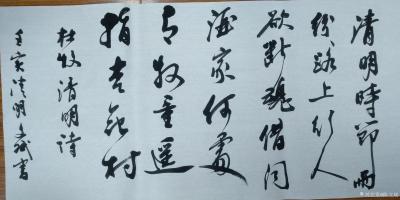 清明時節雨
紛路上行人
欲断魂借问
酒家何處
有牧童遥
指杏花村
杜牧清明詩
壬寅清明書